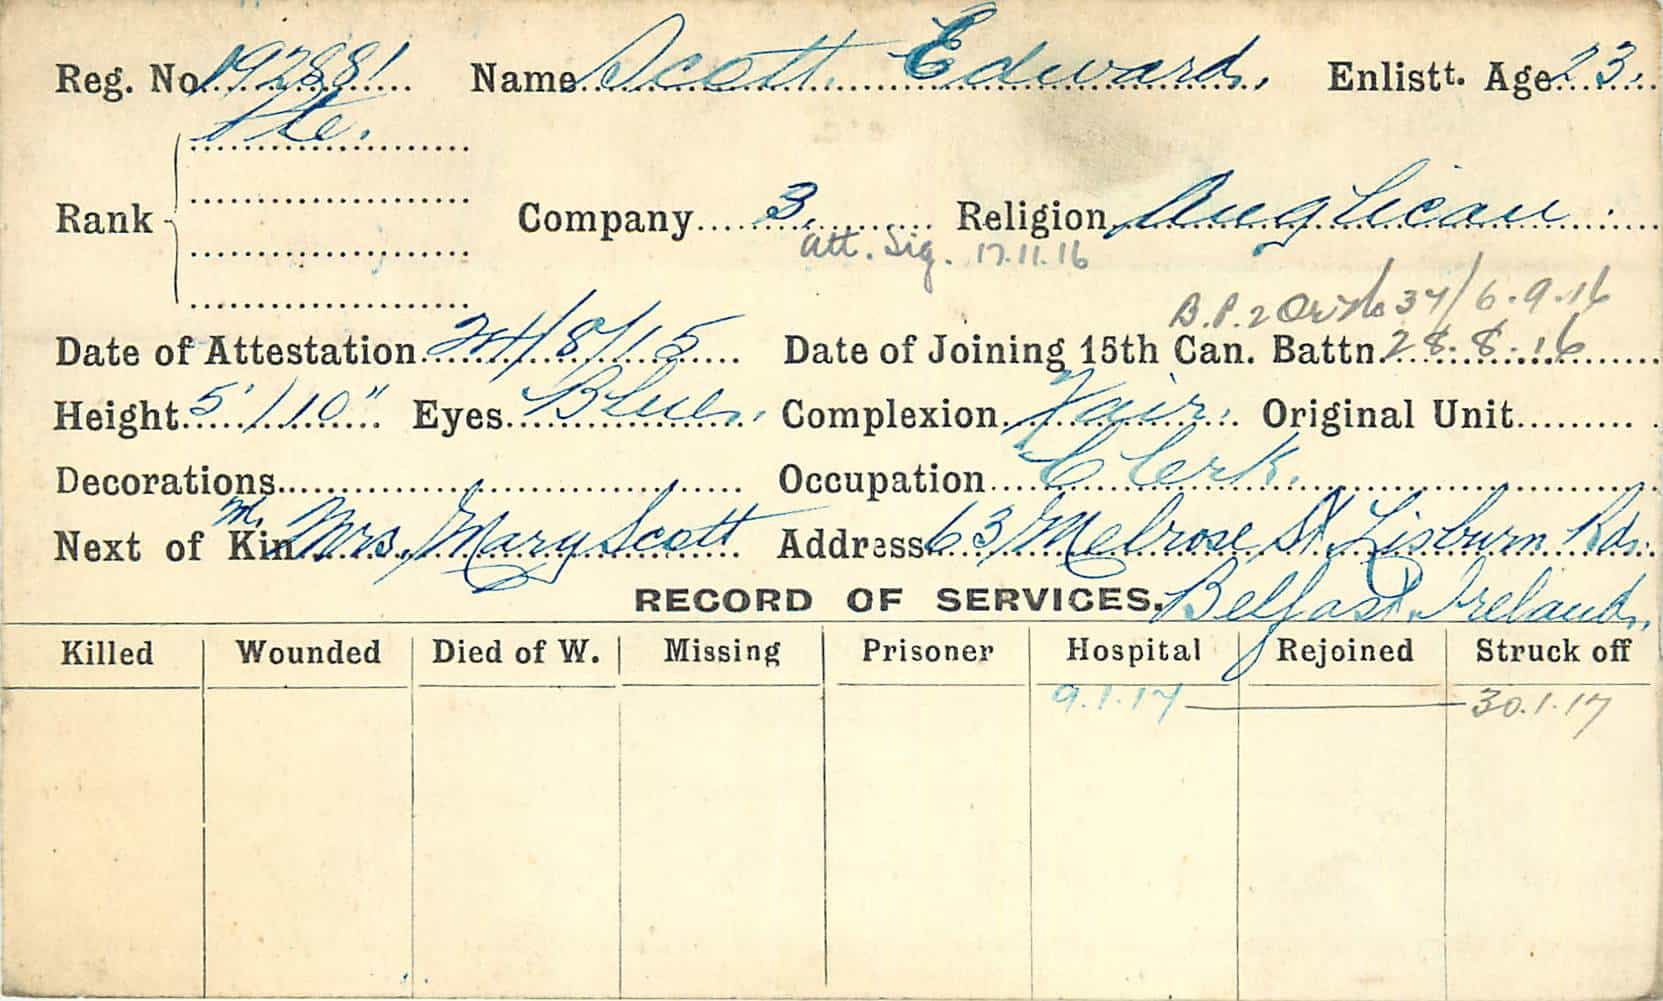 Reg. No. 192881 Name Scott. Edward. Enlistt. Age 23.
Pte.
Rank Company 3. Religion Anglican
Att. Sig. 17.11.16
B.P. 2 Or No 37/6.9.16
Date of Attestation 24/8/15 Date of Joining 15th Can. Battn. 28.8.16
Height 5'/10" Eyes Blue. Complexion Fair. Original Unit
Decorations Occupation Clerk.
m.
Next of Kin Mrs. Mary Scott Address 63 Melrose St. Lisburn Rd.
RECORD OF SERVICES. Belfast. Ireland.
Killed Wounded Died of W. Missing Prisoner Hospital Rejoined Struck off
9.1.17 30.1.17